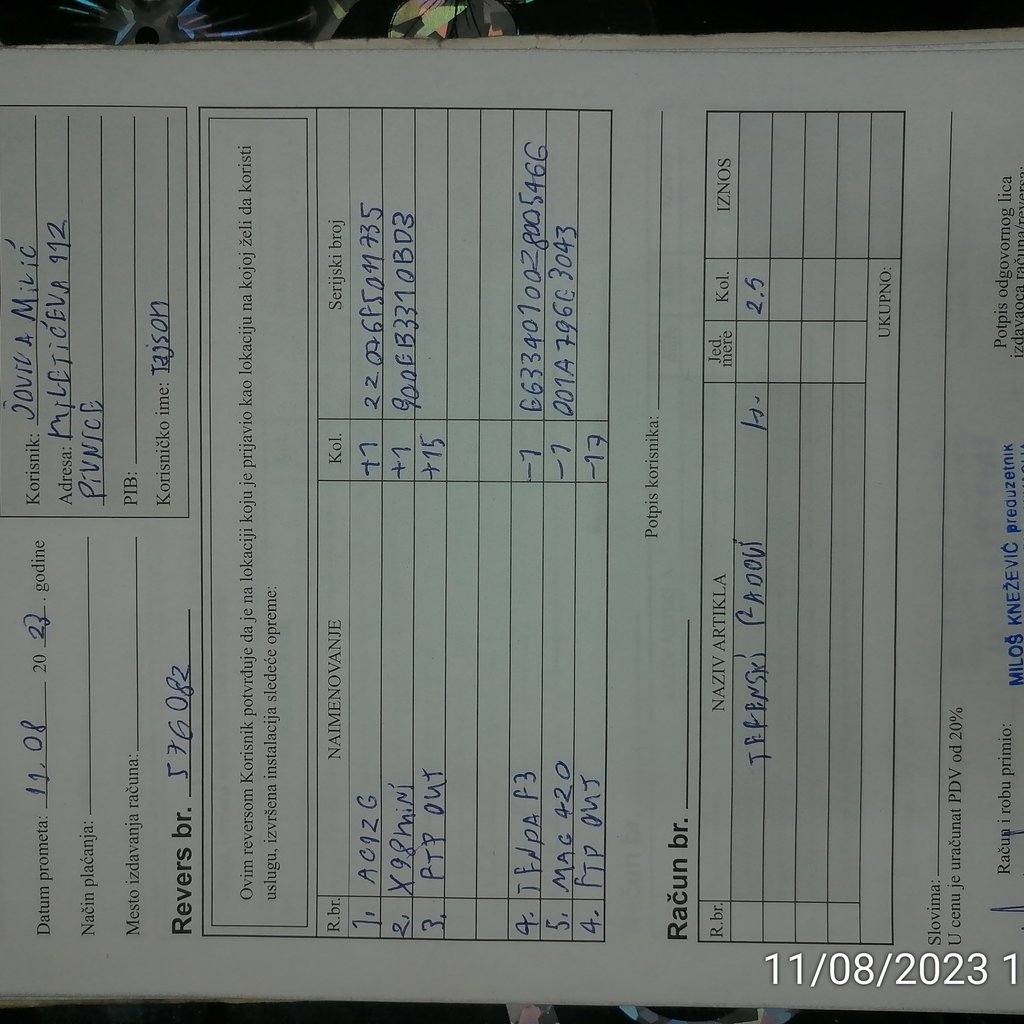 Datum prometa: 11.08 2023. godine
Način plaćanja:
Mesto izdavanja računa:
Revers br. 576082
Korisnik: JOVICA MILIĆ
Adresa: MILETIĆEVA 112
PIVNICE
PIB:
Korisničko ime: Tajson
Ovim reversom Korisnik potvrđuje da je na lokaciji koju je prijavio kao lokaciju na kojoj želi da koristi
uslugu, izvršena instalacija sledeće opreme:
R.br. NAIMENOVANJE Kol. Serijski broj
1. AC12G +1
2. X98mini +1 900EB3310BD3
3. FTP OUT +15
4. TENDA F3 -1
5. MAG 420 -1 001A796C3043
4. FTP OUT -17
Potpis korisnika:
Račun br.
R.br. NAZIV ARTIKLA Jed. mere Kol. IZNOS
TERENSKI RADOVI H. 2.5
UKUPNO:
Slovima:
U cenu je uračunat PDV od 20%
Račun i robu primio:
MILOŠ KNEŽEVIĆ preduzetnik
Potpis odgovornog lica
izdavaoca računa/reversa:
11/08/2023 1